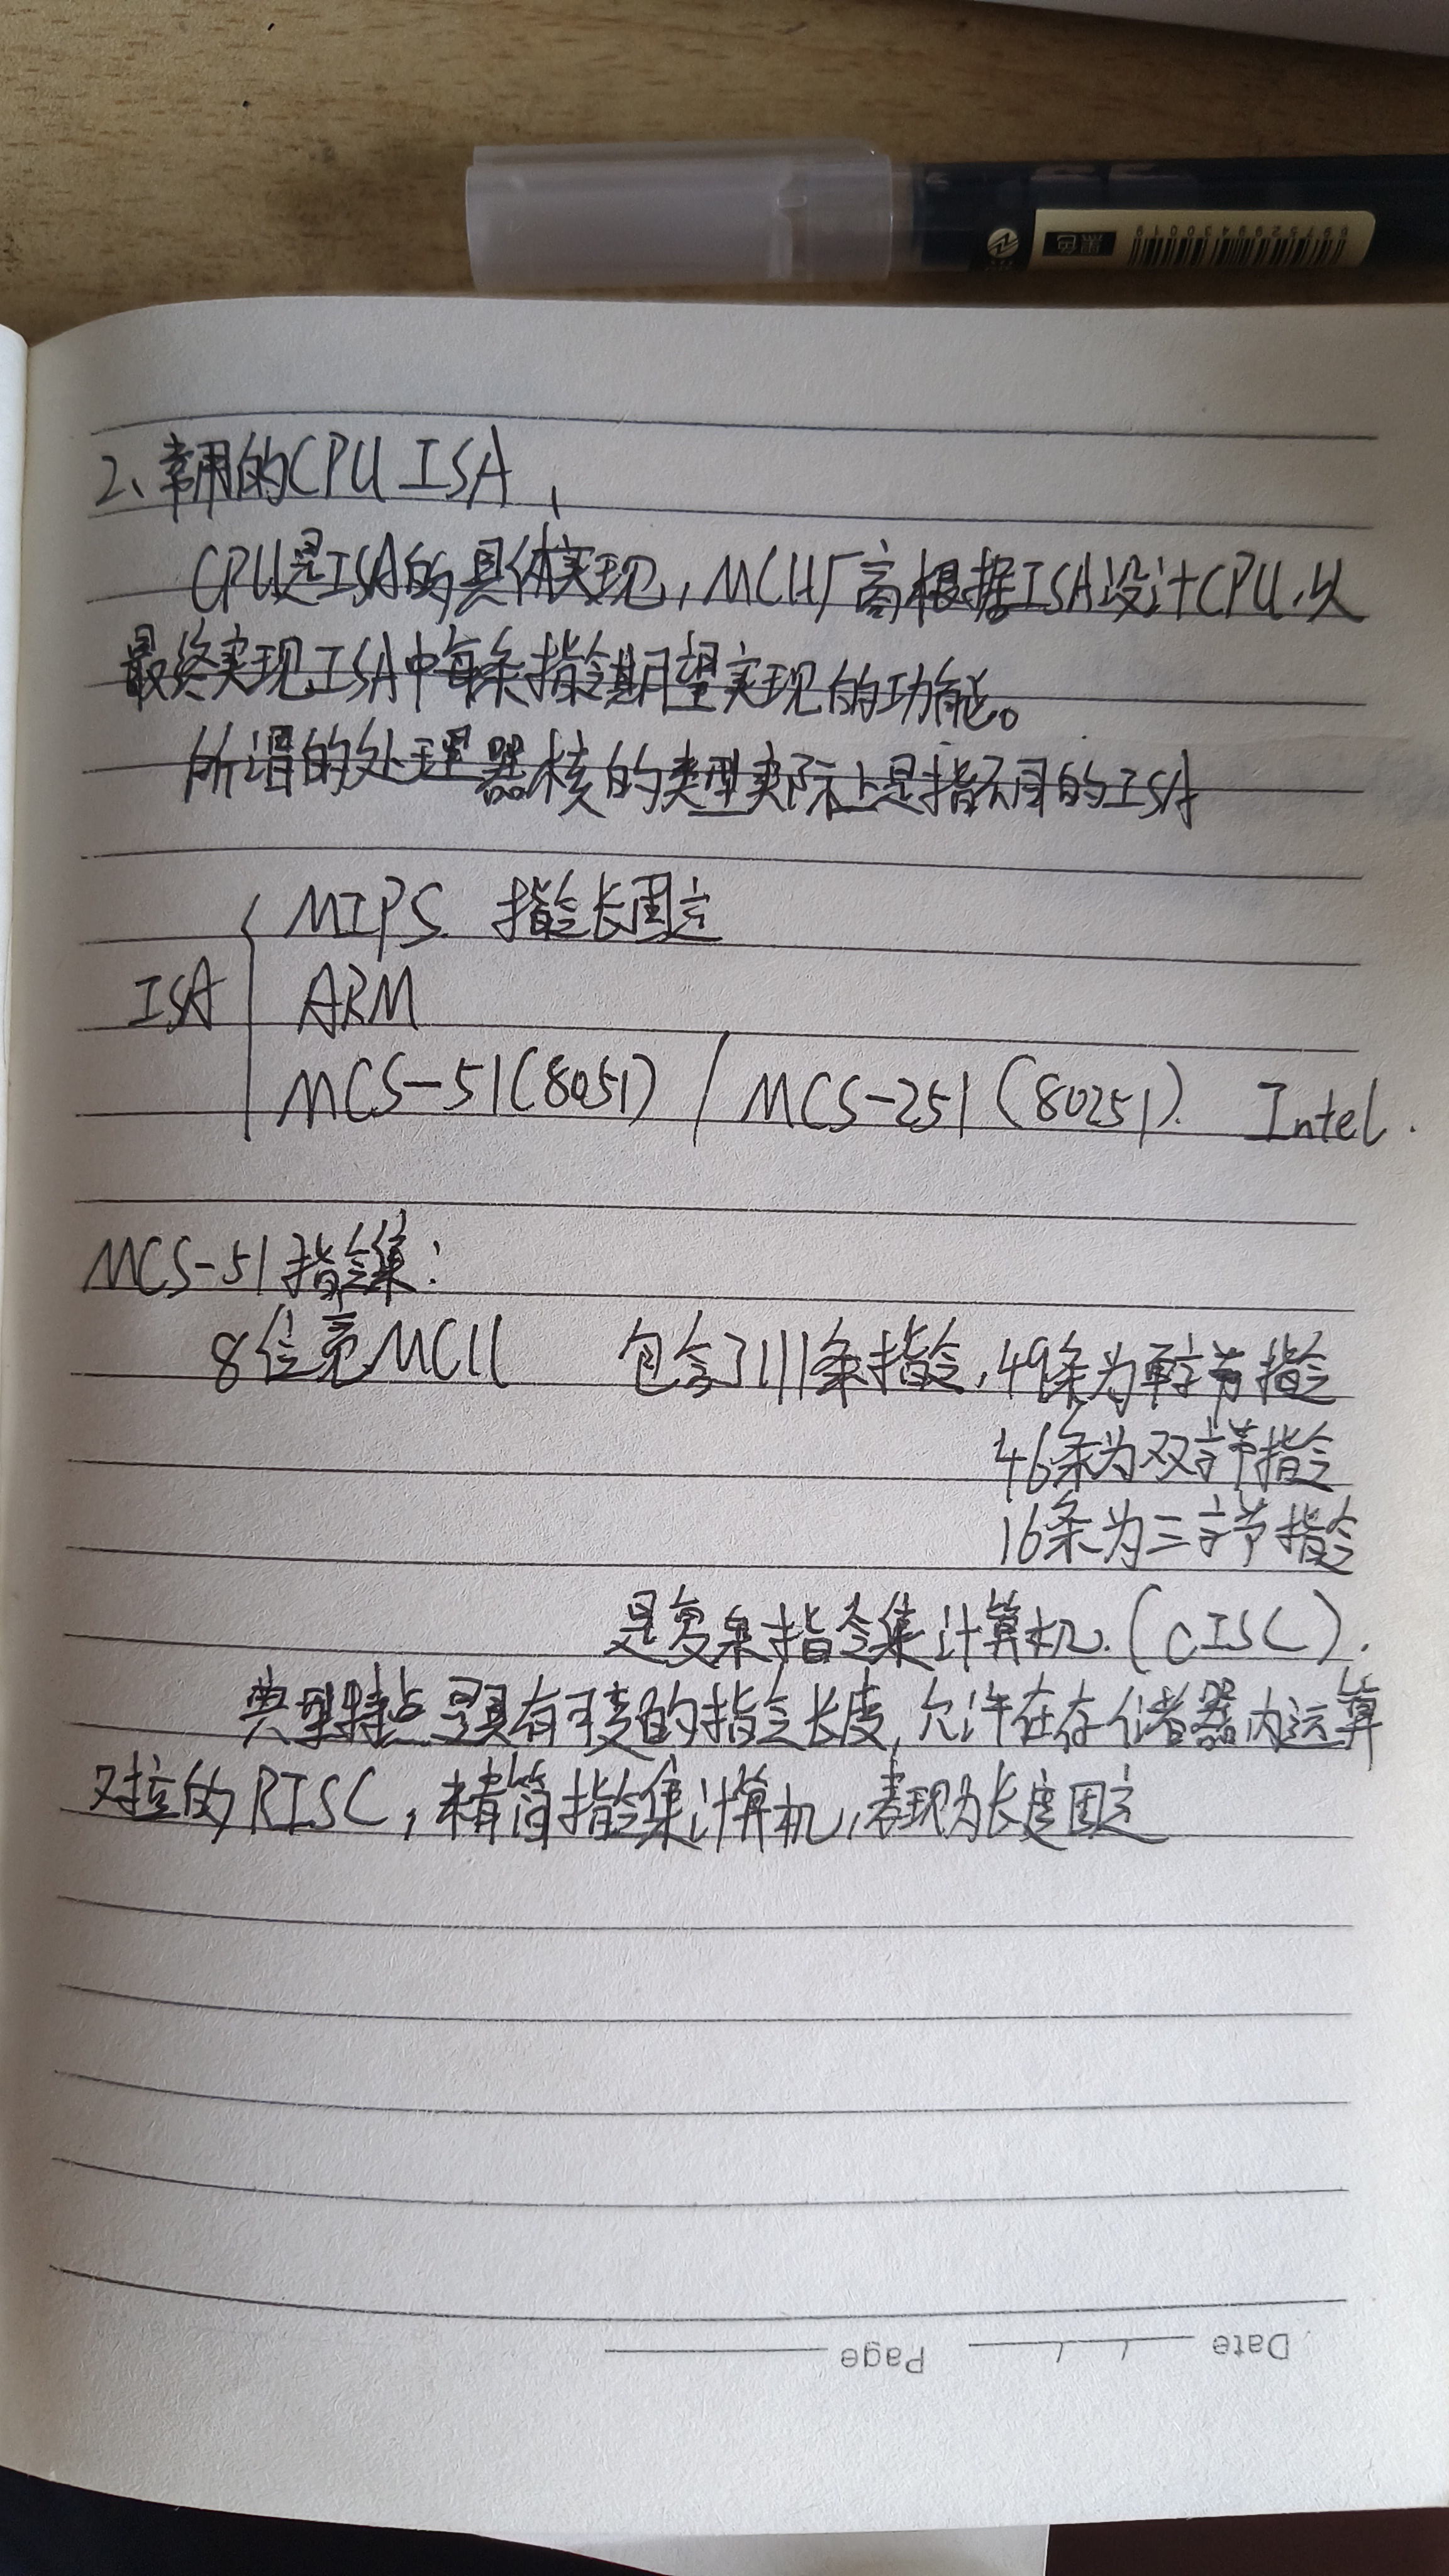 黑色
6975299430019
2、常用的CPU ISA
CPU是ISA的具体实现,MCU厂商根据ISA设计CPU,以
最终实现ISA中每条指令期望实现的功能。
所谓的处理器核的类型实际上是指不同的ISA
MIPS 指令长固定
ISA
ARM
MCS-51(8051) / MCS-251(80251). Intel.
MCS-51指令集:
8位宽MCU 包含了111条指令,49条为单字节指令
46条为双字节指令
16条为三字节指令
是复杂指令集计算机.(CISC).
典型特点是具有可变的指令长度,允许在存储器内运算
对应的RISC,精简指令集计算机,表现为长度固定
Page Date